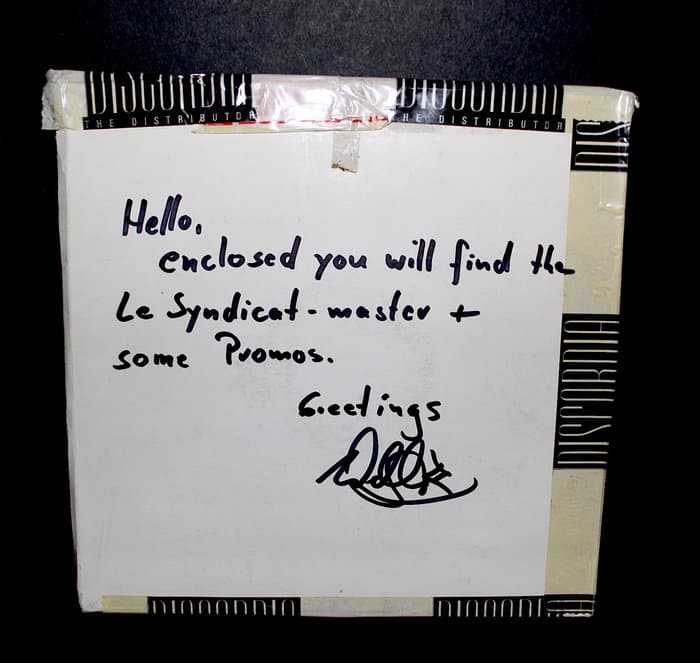 DISCORDIA DISCORDIA
THE DISTRIBUTOR HE DISTRIBUTOR
DIS
Hello,
enclosed you will find the
Le Syndicat-master +
some Promos.
Greetings
DISCORDIA
DISCORDIA DISCORDIA